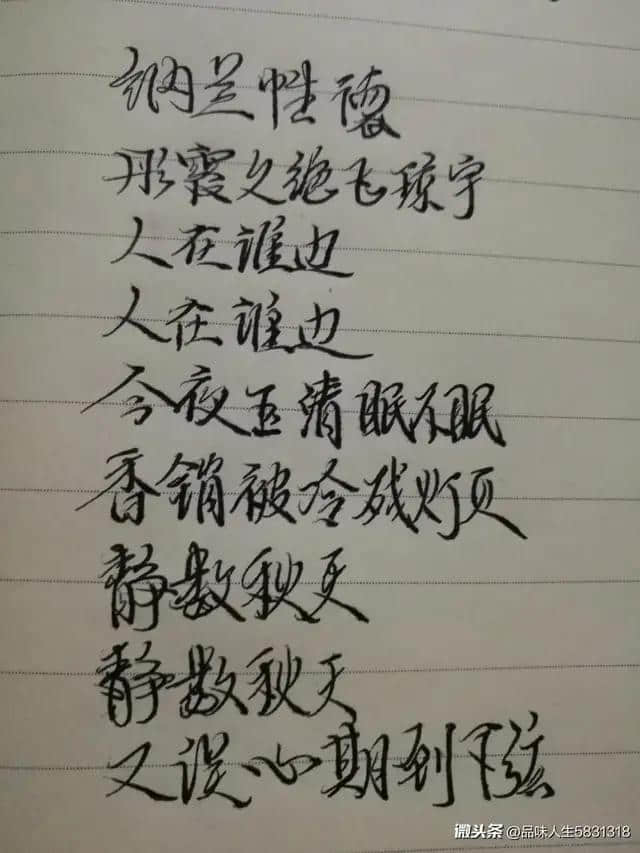 纳兰性德
彤霞久绝飞琼宇
人在谁边
人在谁边
今夜玉清眠不眠
香销被冷残灯灭
静数秋天
静数秋天
又误心期到下弦
微头条 @品味人生5831318